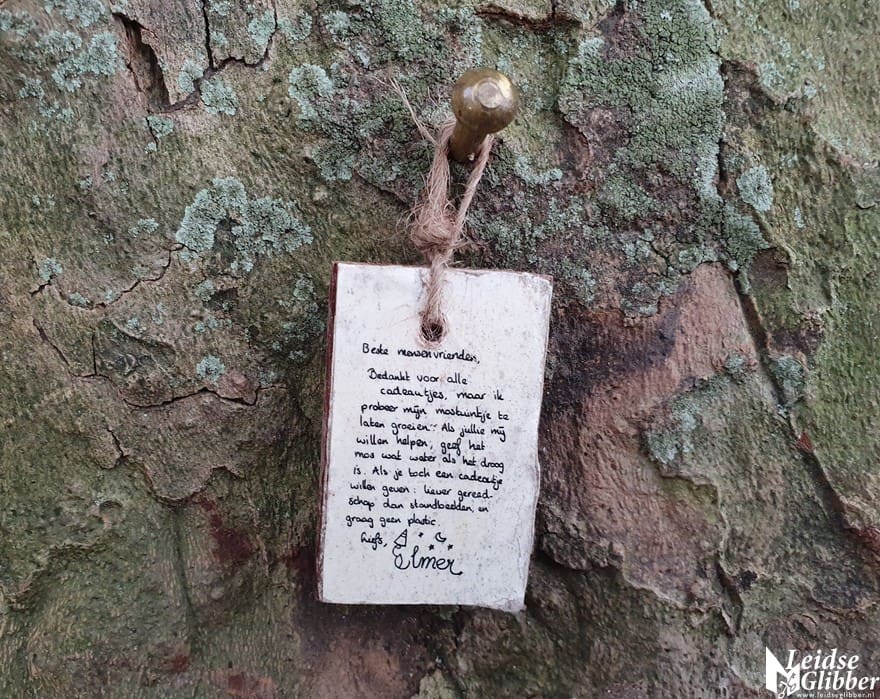 Beste mensenvrienden,
Bedankt voor alle
cadeautjes, maar ik
probeer mijn mostuintje te
laten groeien. Als jullie mij
willen helpen, geef het
mos wat water als het droog
is. Als je toch een cadeautje
willen geven: liever gereed-
schap dan standbeelden, en
graag geen plastic.
Liefs,
Elmer
Leidse
Glibber
www.leidseglibber.nl